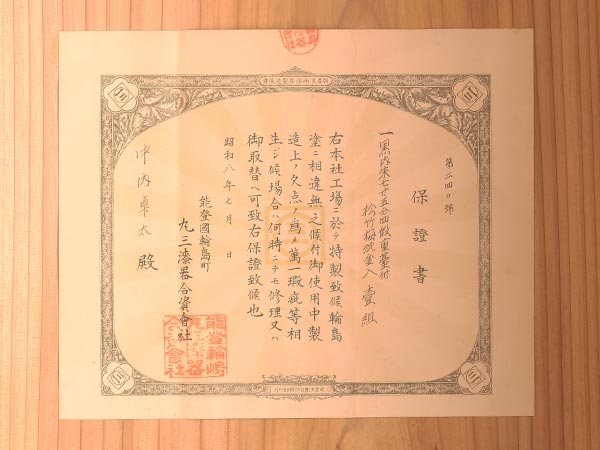 第二四〇號
保證書
一黒内朱七寸五分四段重臺付
松竹梅沈金入 壹組
右本社工場ニ於テ特製致候輪島
塗ニ相違無之候付御使用中製
造上ノ欠点ノ爲メ萬一瑕疵等相
生シ候場合ハ何時ニテモ修理又ハ
御取替ヘ可致右保證致候也
昭和八年七月 日
能登國輪島町
九三漆器合資會社
能登輪島
九三漆器
合資會社
中内 太 殿